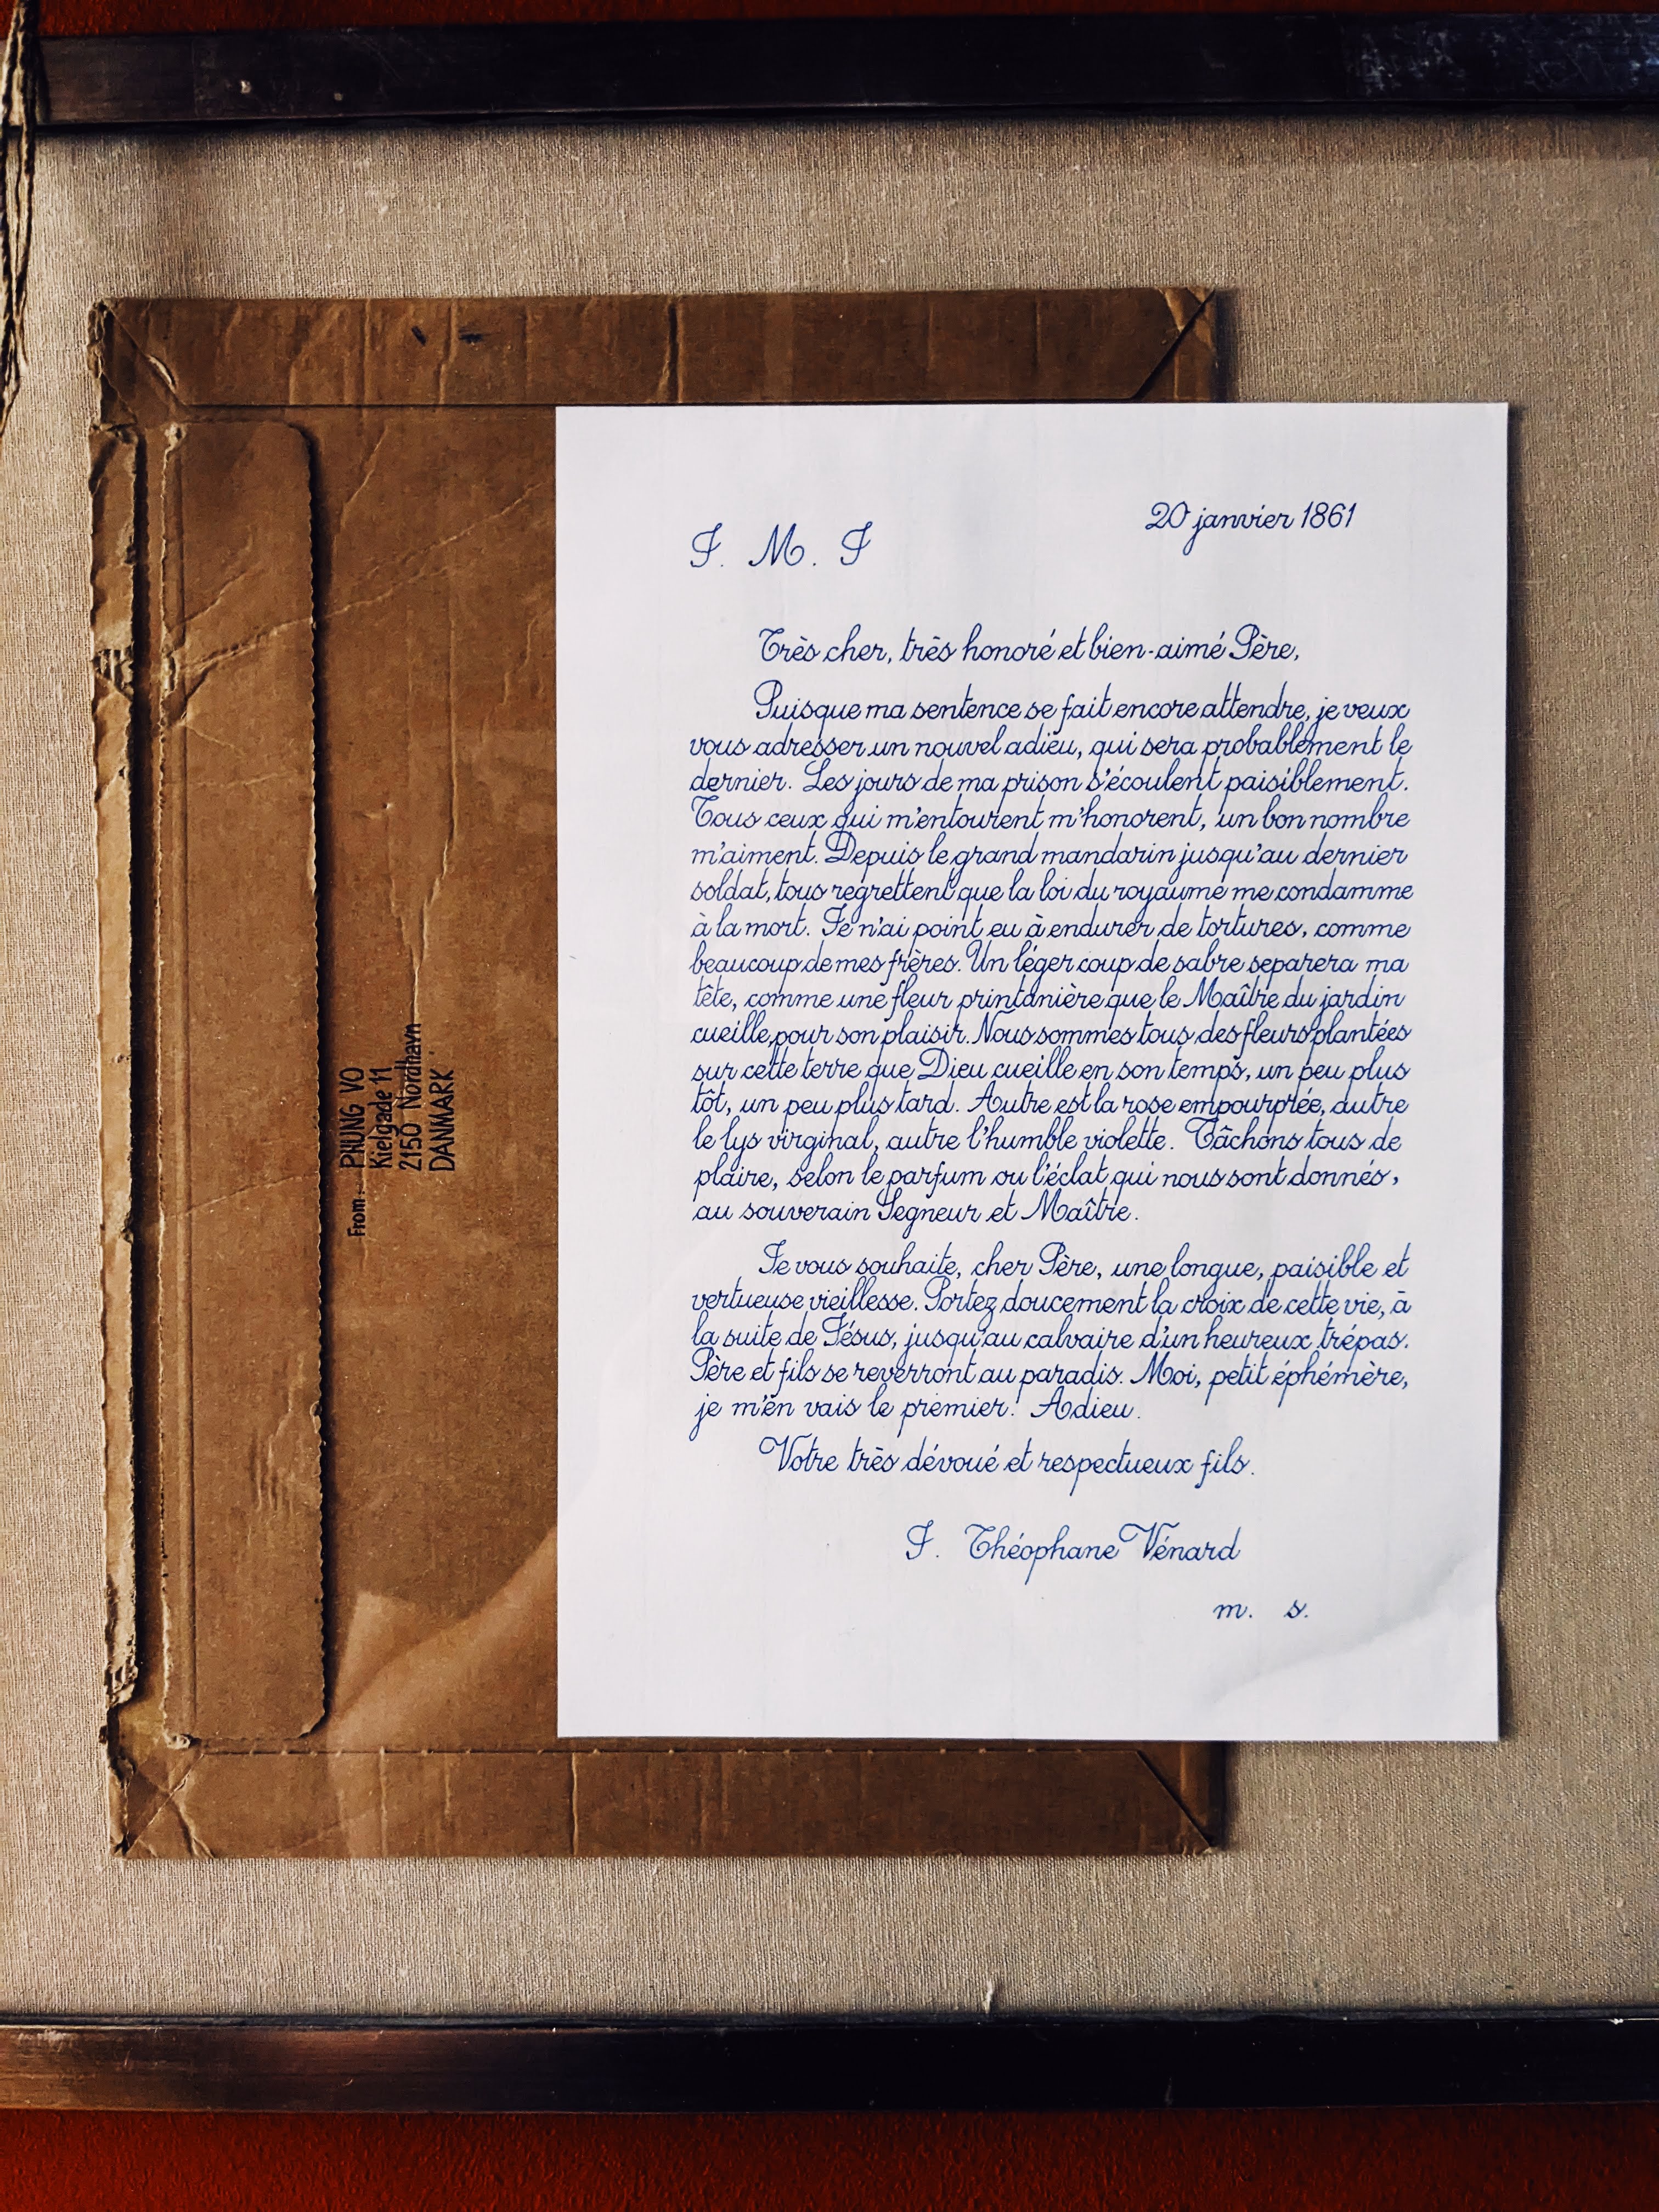 From: PHUNG VO
Kielgade 11
2150 Nordhavn
DANMARK
20 janvier 1861
J. M. J
Très cher, très honoré et bien-aimé Père,
Puisque ma sentence se fait encore attendre, je veux
vous adresser un nouvel adieu, qui sera probablement le
dernier. Les jours de ma prison s'écoulent paisiblement.
Tous ceux qui m'entourent m'honorent, un bon nombre
m'aiment. Depuis le grand mandarin jusqu'au dernier
soldat, tous regrettent que la loi du royaume me condamme
à la mort. Je n'ai point eu à endurer de tortures, comme
beaucoup de mes frères. Un léger coup de sabre separera ma
tête, comme une fleur printanière que le Maître du jardin
cueille pour son plaisir. Nous sommes tous des fleurs plantées
sur cette terre que Dieu cueille en son temps, un peu plus
tôt, un peu plus tard. Autre est la rose empourprée, autre
le lys virginal, autre l'humble violette. Tâchons tous de
plaire, selon le parfum ou l'éclat qui nous sont donnés,
au souverain Segneur et Maître.
Je vous souhaite, cher Père, une longue, paisible et
vertueuse vieillesse. Portez doucement la croix de cette vie, à
la suite de Jésus, jusqu'au calvaire d'un heureux trépas.
Père et fils se reverront au paradis. Moi, petit éphémère,
je m'en vais le premier. Adieu.
Votre très dévoué et respectueux fils.
J. Théophane Vénard
m. s.